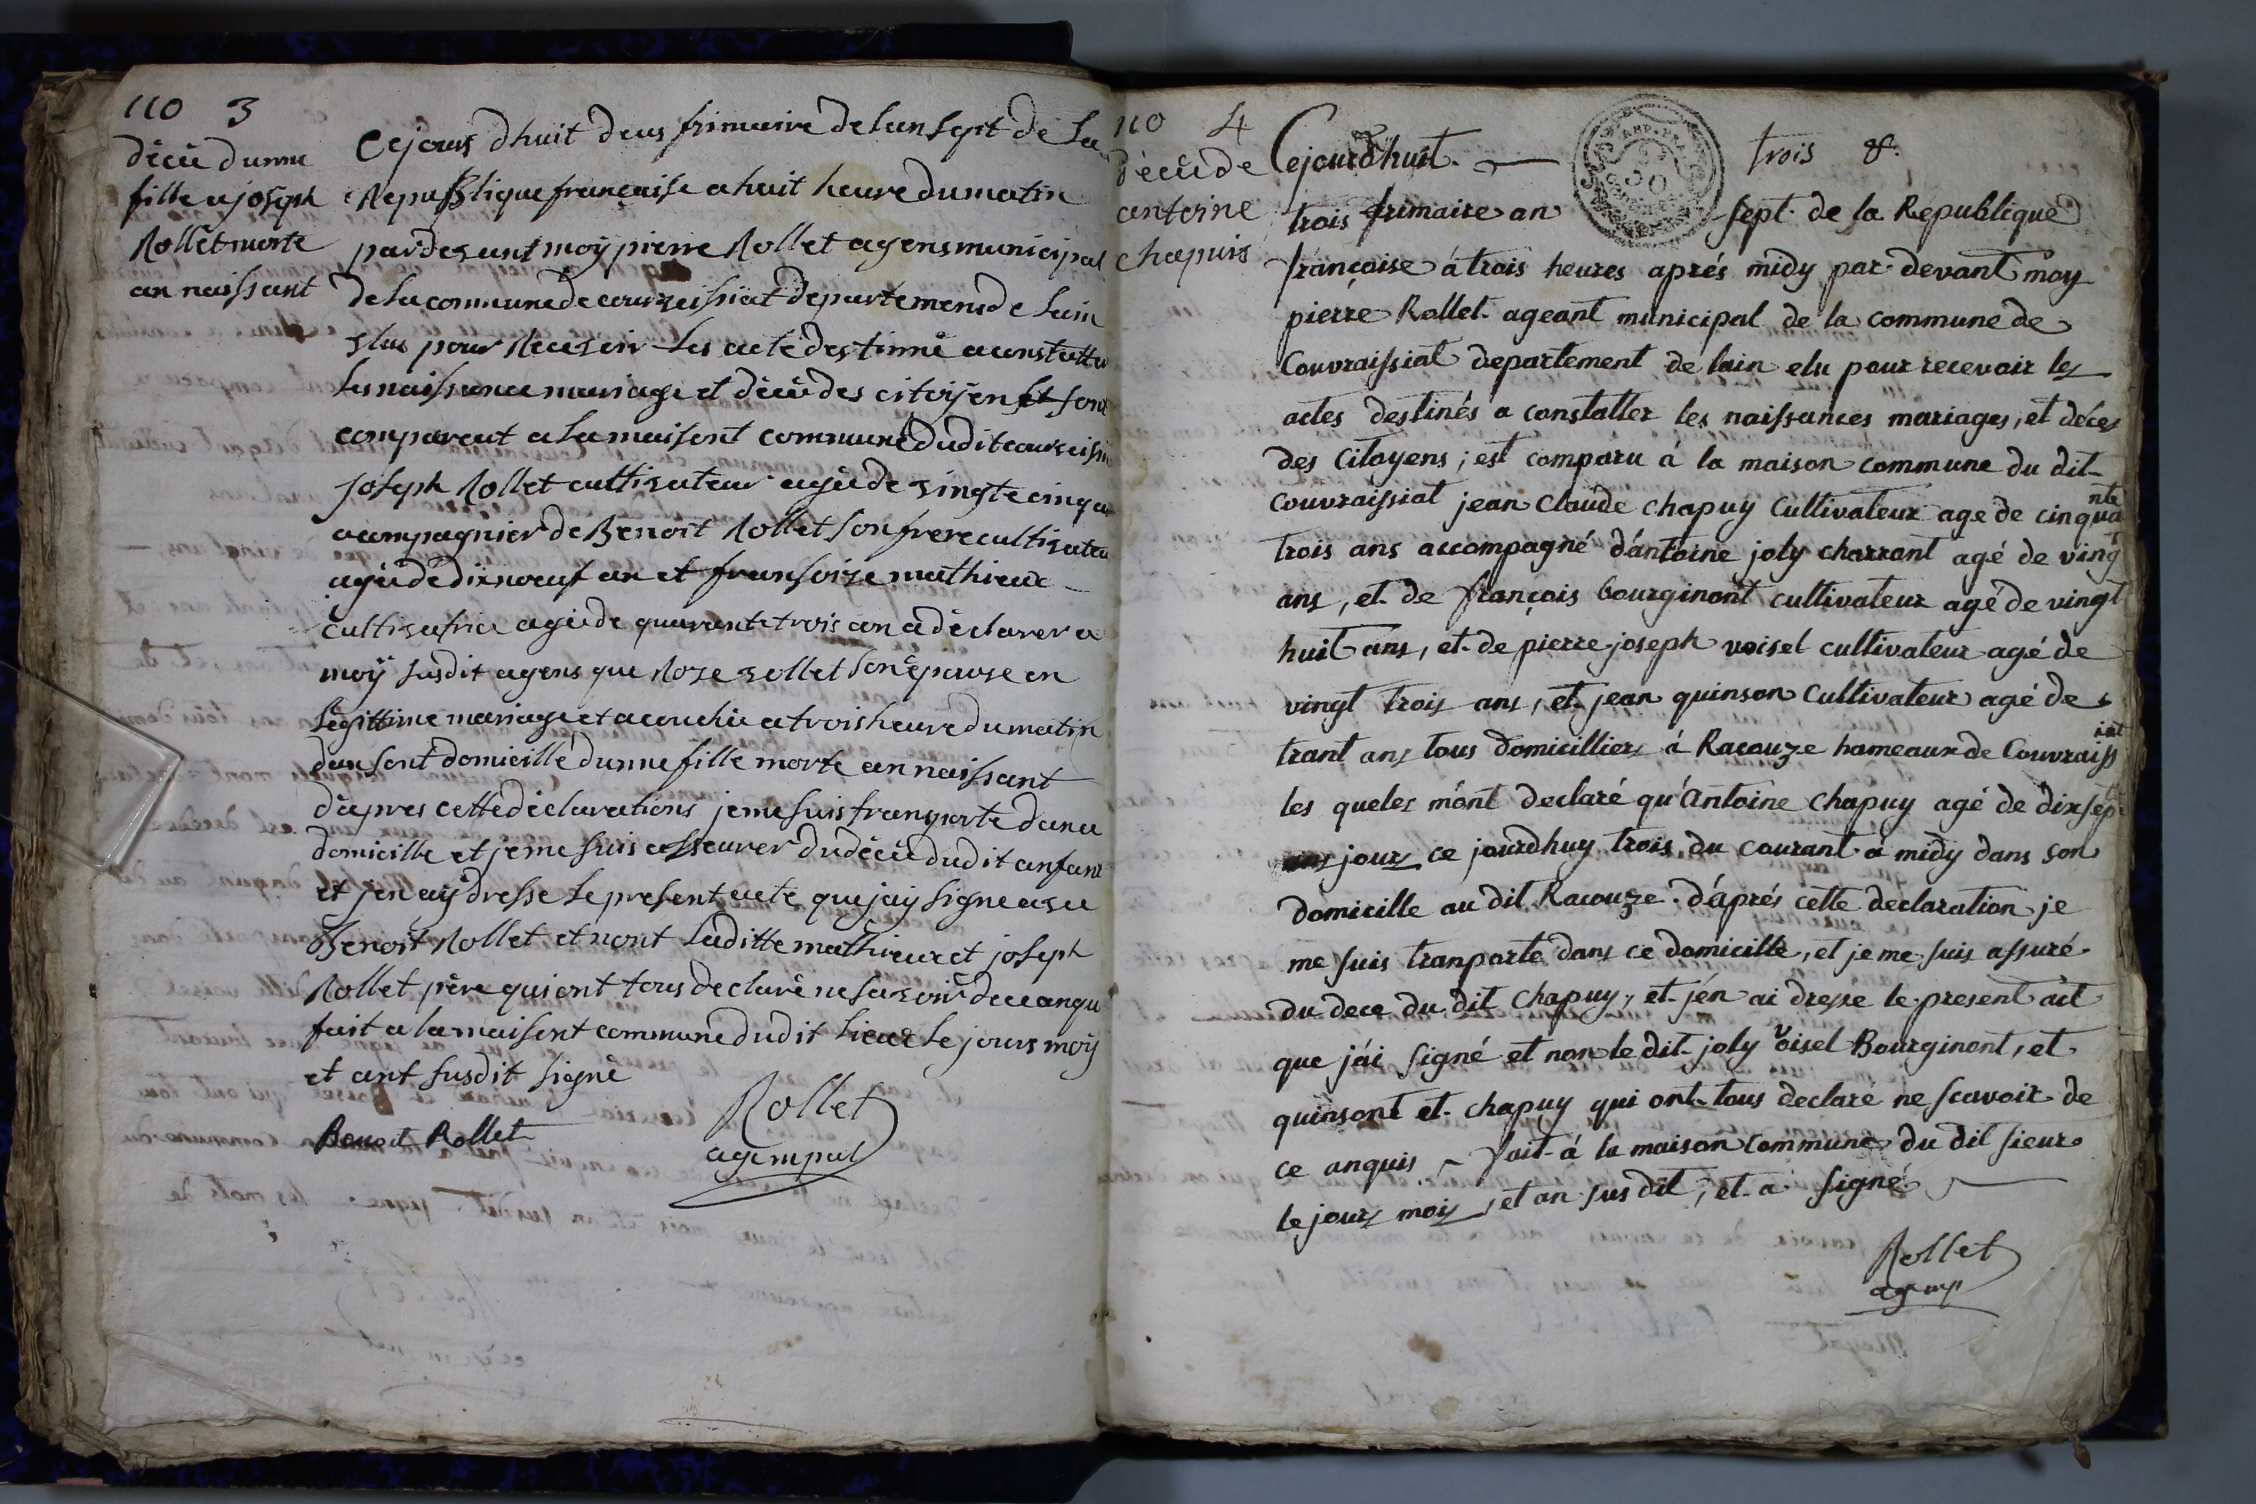 110 3
décè dunne
fille a joseph
Rollêt morte
an naissant
Cejours dhuit deus frimaire de lan sept de La
Republique française a huit heure du matin
pardevant moÿ pierre Rollet agens municipal
de la commune de courveissiat departemens de Lain
elus pour Recevoir Les acte destinné a constatter
Les naissance mariage et décè des citoÿen et sont
compareut a La maisont commune dudit courveissia
joseph Rollet cultivateur agéé de vingte cinq an
acompagnier de Benoit Rollet son frere cultivateu
agéé de dix noeuf an et fransoize mathieux
cultivatrice agéé de quarante trois an a déclarer a
moÿ susdit agens que Roze vollet son épouse en
Légittime mariage et acouchée a trois heure du matin
dans sont domicille dunne fille morte an naissant
dapres cette déclarations je me suis transporte dans ce
domicille et je me suis asseurer du décè dudit anfant
et jen aÿ dresse Le present acte que jaÿ signe avec
Benoit Rollet et nont Laditte mathieux et joseph
Rollet père qui ont tous declaré ne savoir de ce anqui
fait a la maisont commune dudit Lieux Le jours moÿ
et ant susdit signé
Benoit Rollet
Rollet
age mpal
110 4
décè de
antoine
chapuis
Cejourdhuit trois &.
trois frimaire an sept de la Republique
françoise á trois heures aprés midy par devant moy
pierre Rollet ageant municipal de la commune de
Couvraissiat departement de lain elu pour recevoir les
actes destinés a constatter les naissances mariages, et déces
des Citoyens; est comparu á la maison commune du dit
couvraissiat jean claude chapuy Cultivateur age de cinquante
trois ans accompagné dántoine joly charront agé de vingt
ans, et de françois bourginont cultivateur agé de vingt
huit ans, et de pierre joseph voisel cultivateur agé de
vingt trois ans, et jean quinson Cultivateur agé de
trant ans tous domicilliers á Racouze hameaux de Couvraissiat
les queles m'ont declaré qu'Antoine chapuy agé de dix sept
jours ce jourdhuy trois du courant á midy dans son
domicille au dit Racouze. dáprés cette declaration je
me suis tranporté dans ce domicille, et je me suis assuré
du dece du dit chapuy, et jén ai dressé le present act
que jái signé et non le dit joly voisel Bourginont, et
quinsont et chapuy qui ont tous declaré ne scavoir de
ce anquis fait á la maison commune du dit sieur
le jours mois, et an sus dit, et a signé
Rollet
age mp